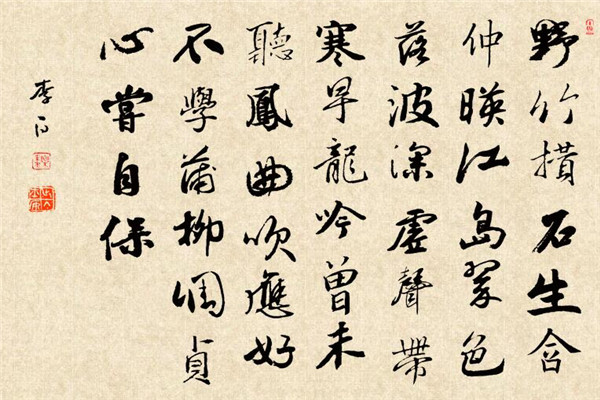 野竹撗石生含
仲暎江島翠色
落波深虛聲帶
寒早龍吟曾未
聽鳳曲吹應好
不學蒲柳凋貞
心嘗自保
李白